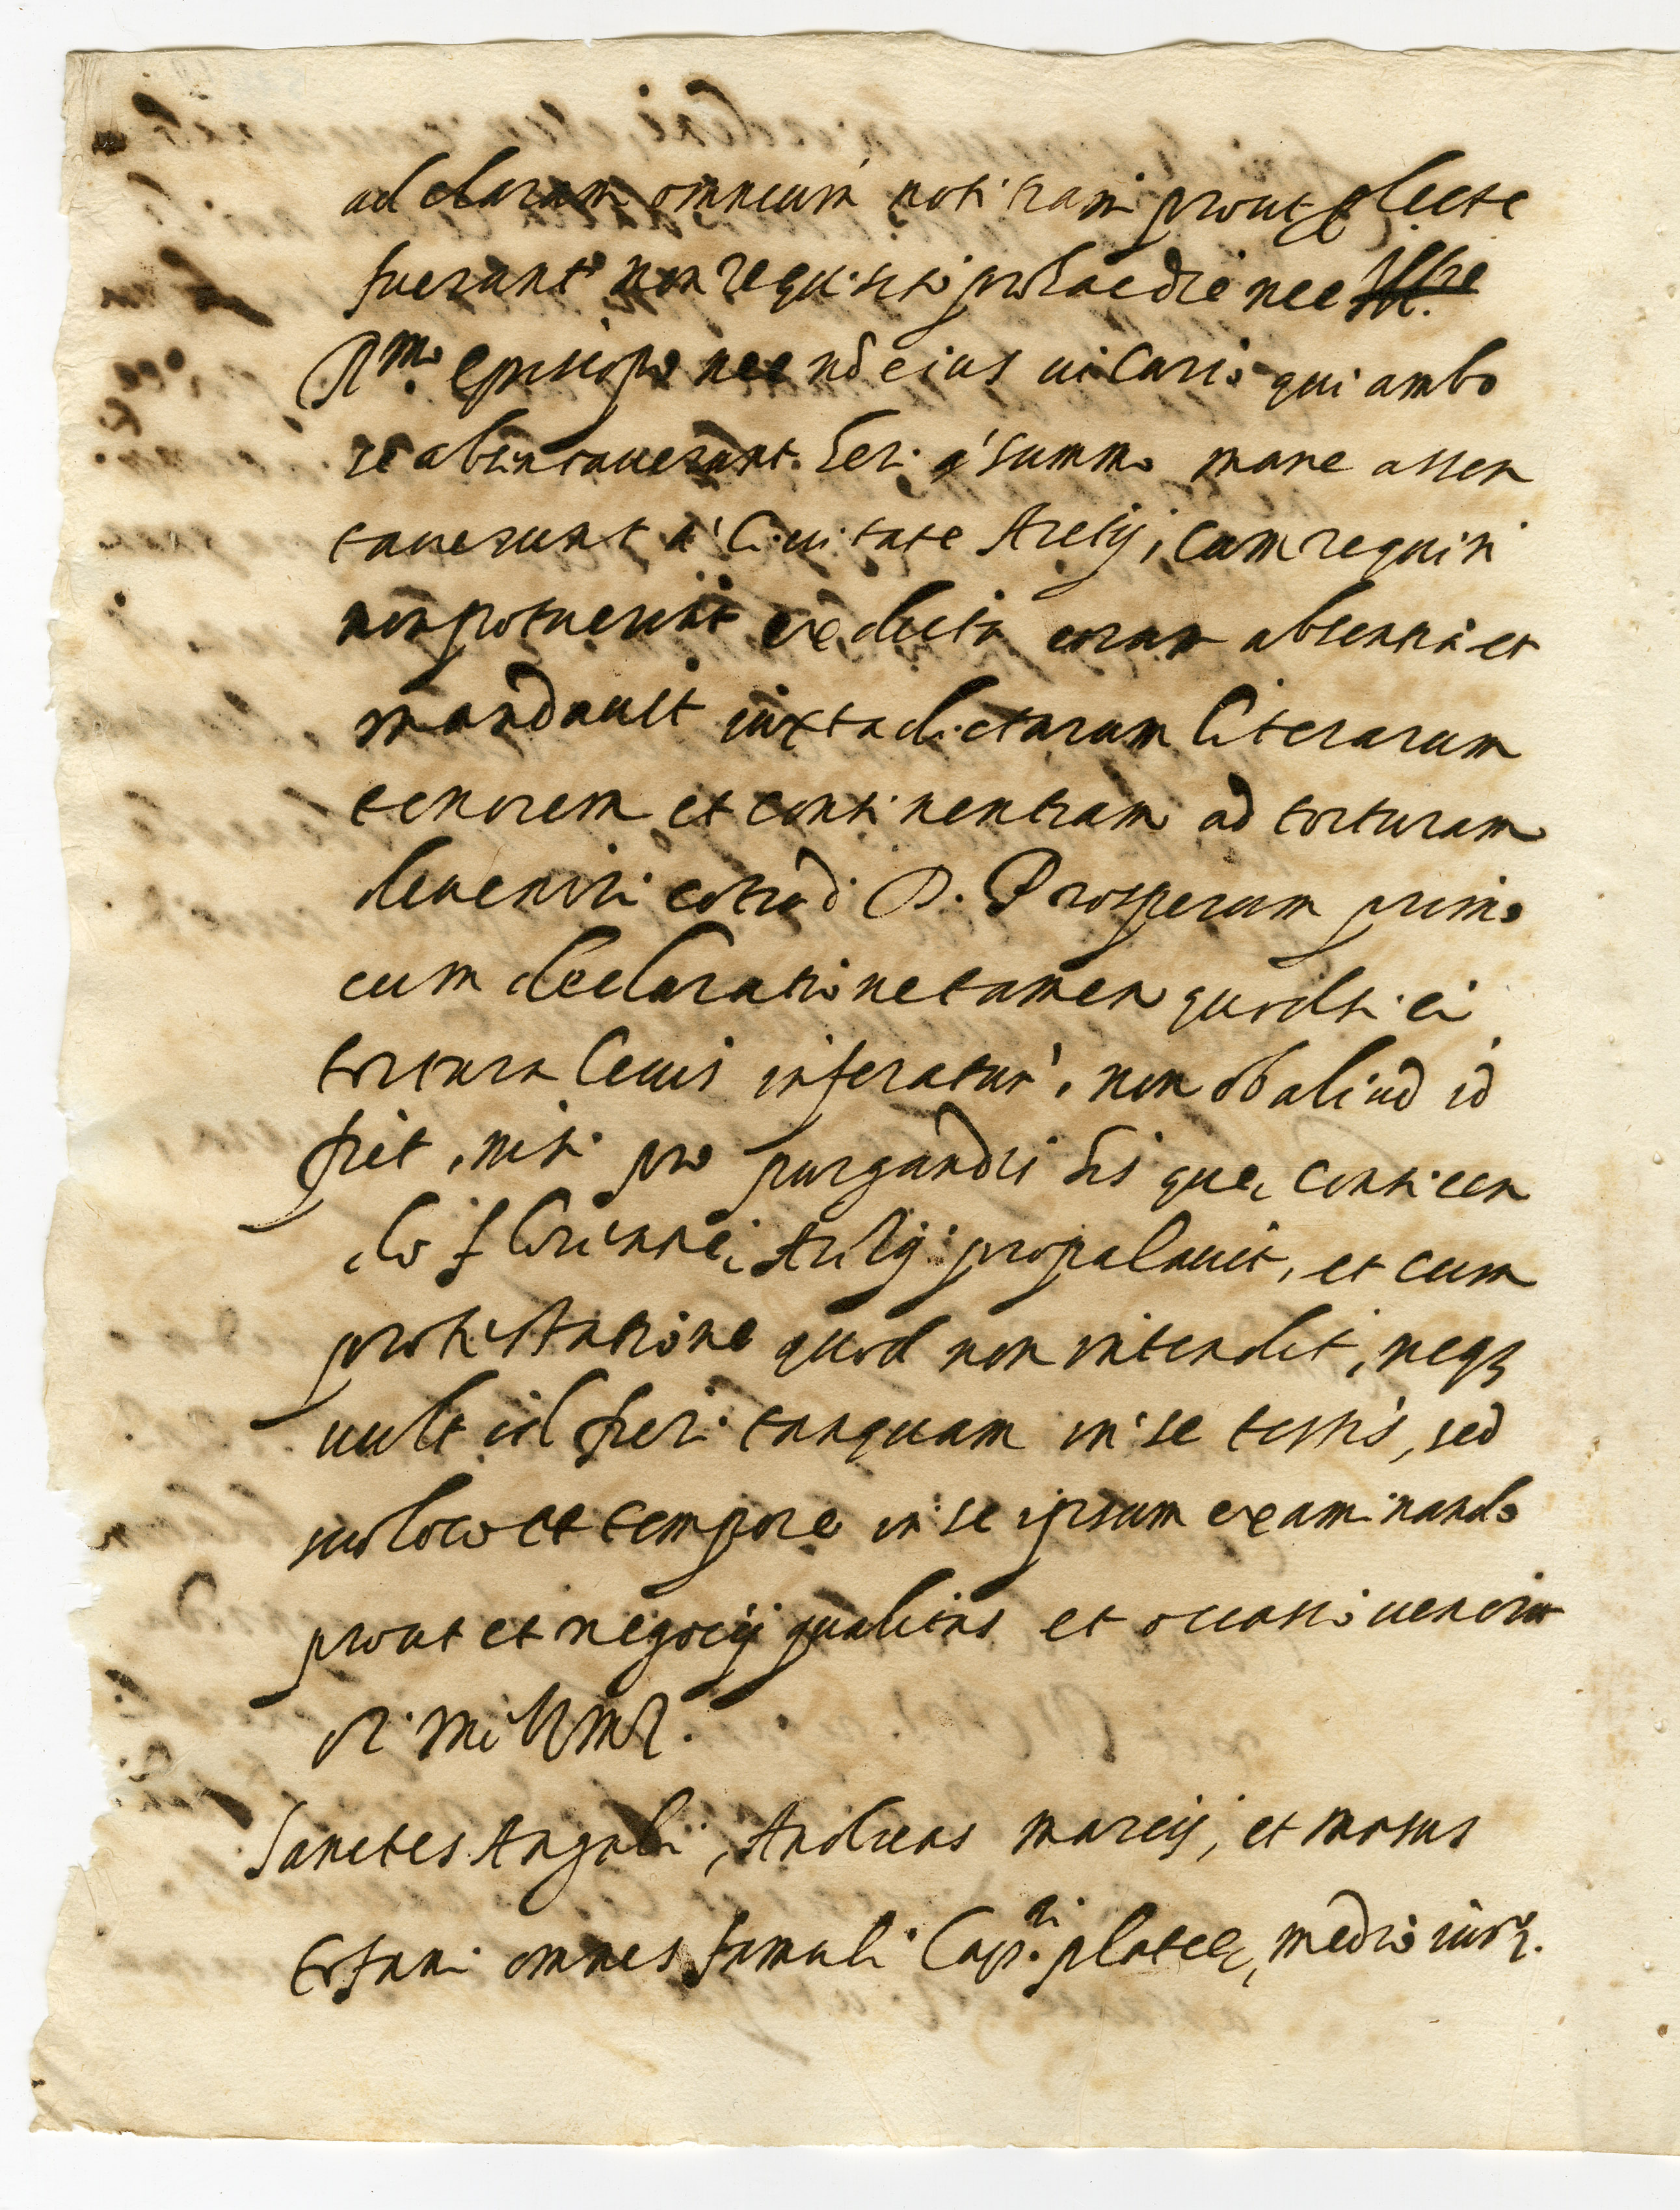 ad claram omnium notitiam prout plecte
fuerunt non requisito pro hac die nec
Rmo. episcopo nec nd eius uicario qui ambo
se absentauerunt heri q' summo mane assen
tauerunt a' Ciuitate Aretij, cum requiri
non potuerint ex dicta eorum absentia et
mandauit iuxta dictarum literarum
tenorem et continentiam ad torturam
deueniri contra d. D. Prosperum primo
cum declaratione tamen quod si ei
tortura leuis inferatur, non ob aliud id
fiet, nisi pro purgandis his que, conticen
do florentie, Aretij propalauit, et cum
protestatione quod non intendit, neqz
uult id fieri tanquam in se testis, sed
suo loco et tempore in se ipsum examinando
prout et negocij qualitas et occasio uenerit
Sanctes Angeli, Andreas marcij, et masus
tofani omnes famuli Cap.ni platee, medio iur.